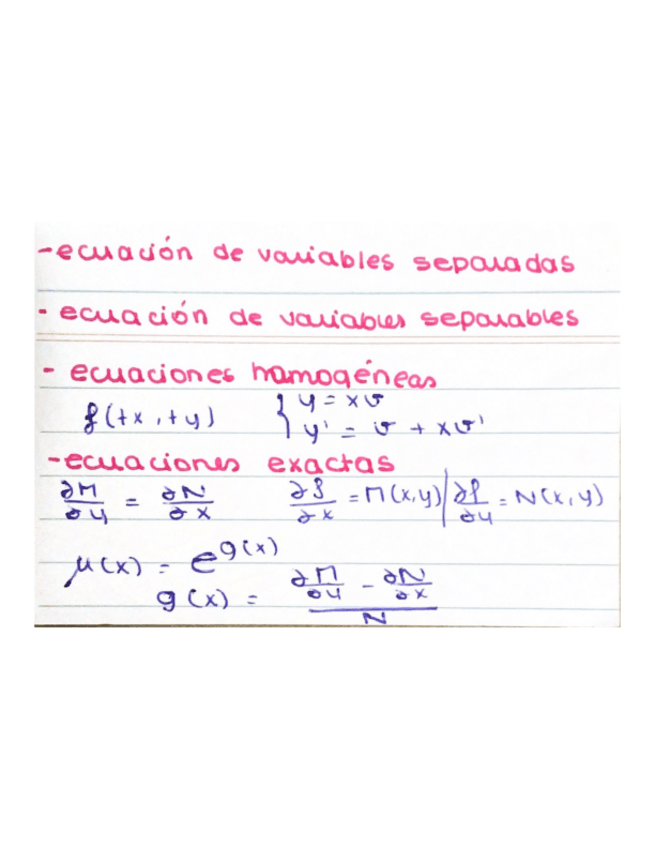 -ecuación de variables separadas
- ecuación de variables separables
- ecuaciones homogéneas
f(tx, ty) { y = xv
y' = v + xv'
-ecuaciones exactas
∂M/∂y = ∂N/∂x ∂f/∂x = M(x,y) | ∂f/∂y = N(x,y)
μ(x) = e^g(x)
g(x) = (∂M/∂y - ∂N/∂x)/N